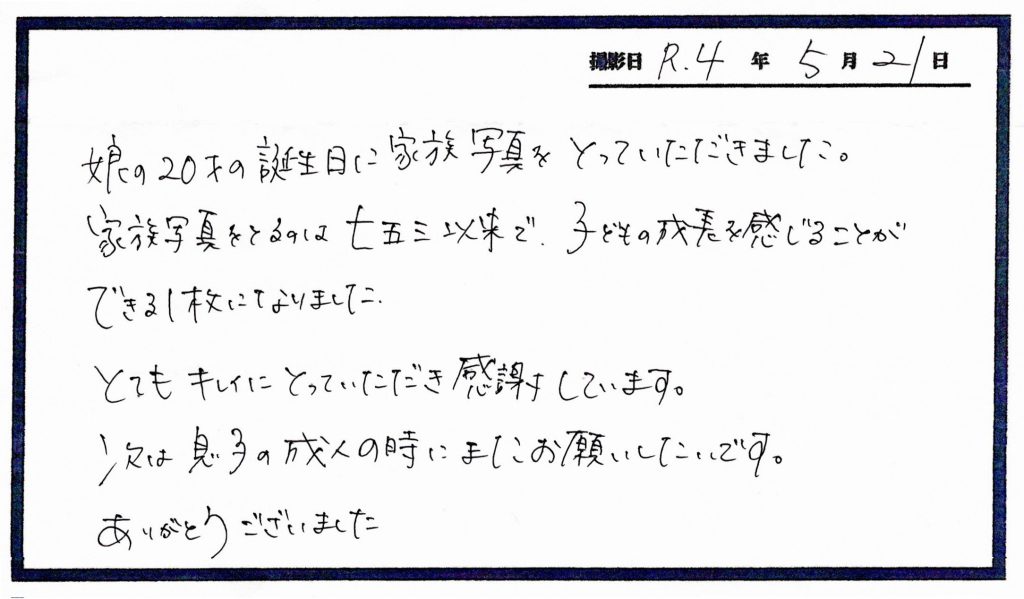 撮影日 R.4 年 5 月 21 日
娘の20才の誕生日に家族写真をとっていただきました。
家族写真をとるのは七五三以来で、子どもの成長を感じることが
できる1枚になりました。
とてもキレイにとっていただき感謝しています。
次は息子の成人の時にまたお願いしたいです。
ありがとうございました